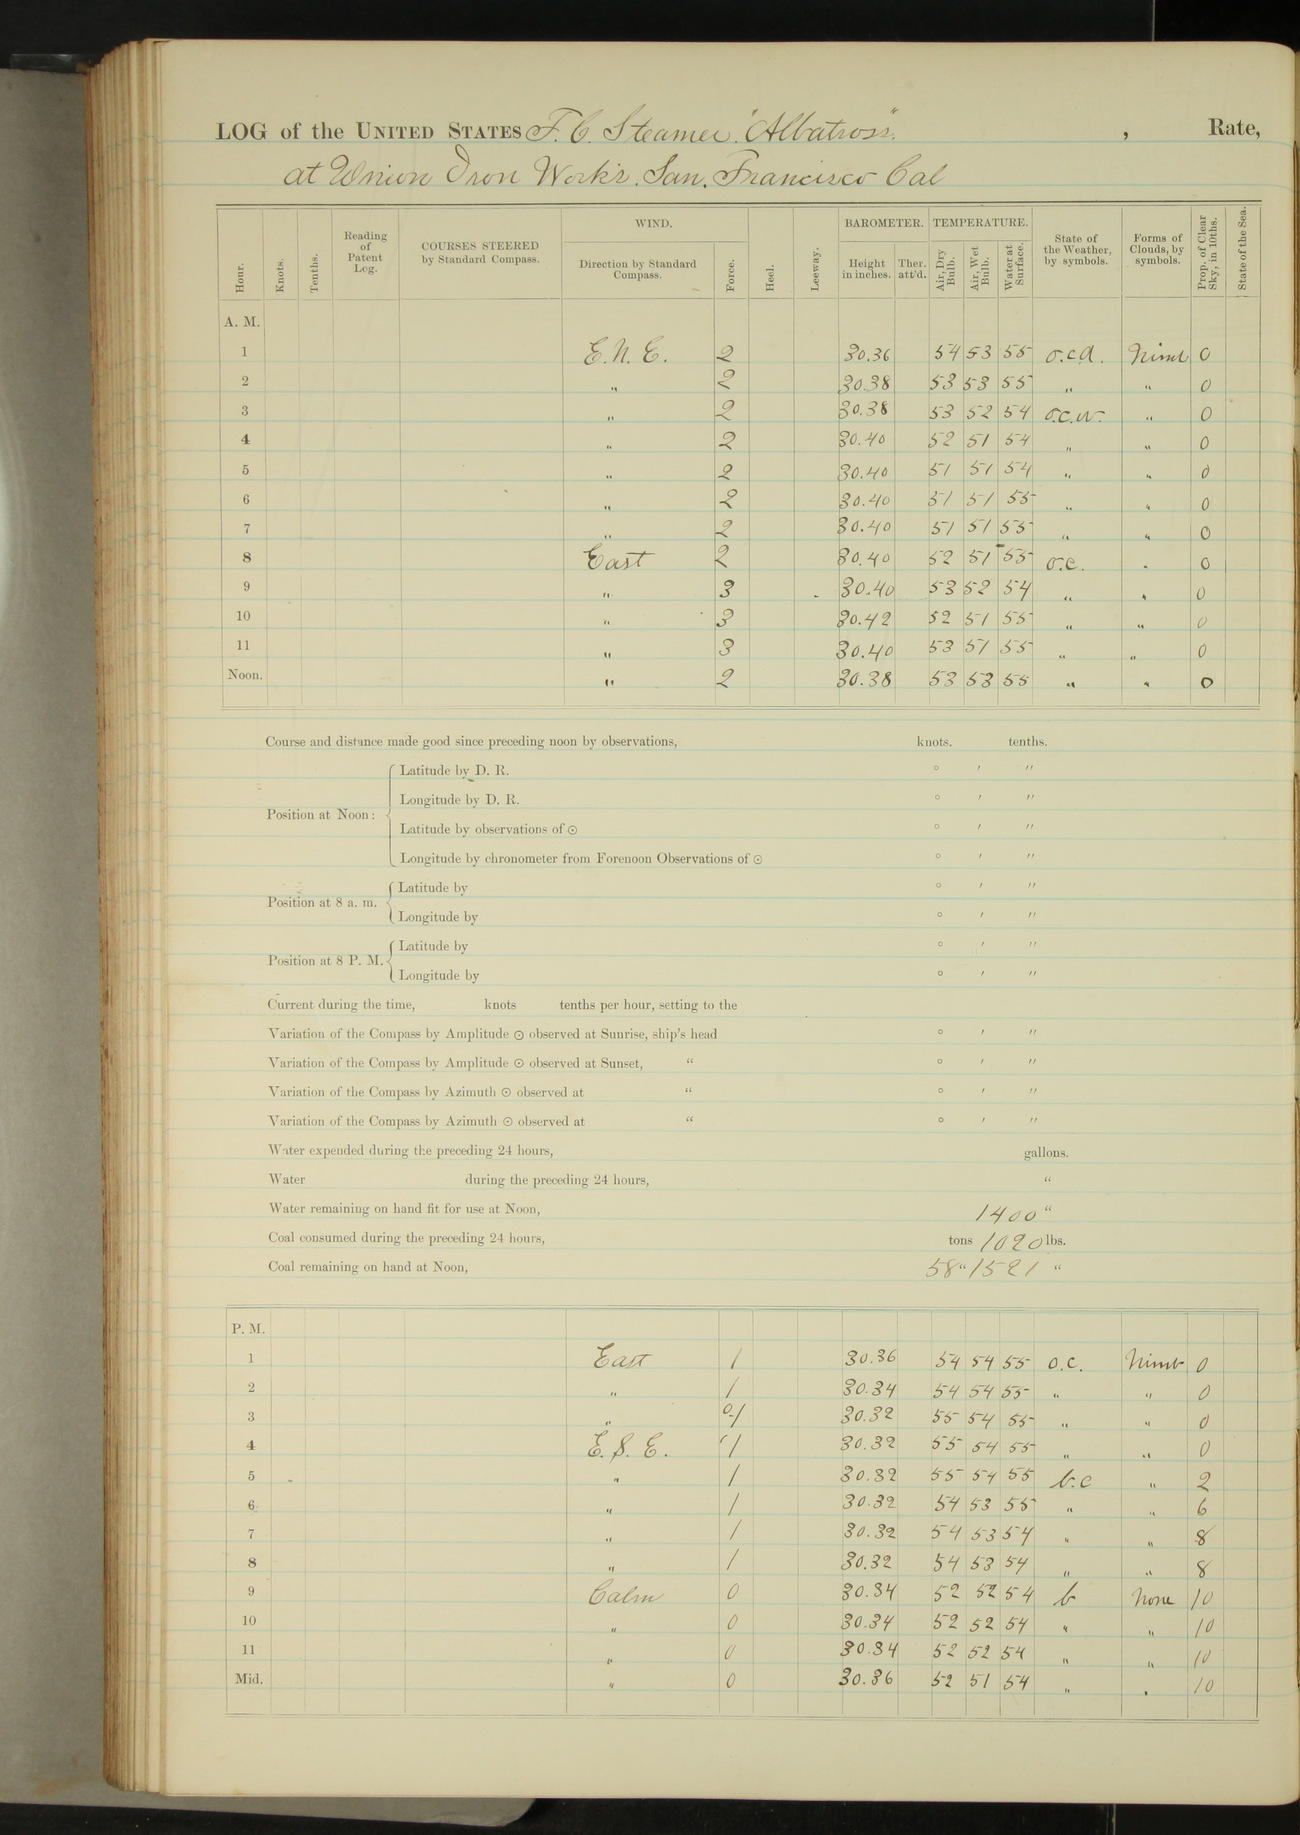 LOG of the UNITED STATES F. C. Steamer "Albatross". , Rate,
at Union Iron Works. San. Francisco Cal
Hour. Knots. Tenths. Reading of Patent Log. COURSES STEERED by Standard Compass. WIND. Direction by Standard Compass. Force. Heel. Leeway. BAROMETER. Height in inches. Ther. att'd. TEMPERATURE. Air, Dry Bulb. Air, Wet Bulb. Water at Surface. State of the Weather, by symbols. Forms of Clouds, by symbols. Prop. of Clear Sky, in 10ths. State of the Sea.
A. M.
1 E. N. E. 2 30.36 54 53 55 o.c.d. Nimb 0
2 " 2 30.38 53 53 55 " " 0
3 " 2 30.38 53 52 54 o.c.w. " 0
4 " 2 30.40 52 51 54 " " 0
5 " 2 30.40 51 51 54 " " 0
6 " 2 30.40 51 51 55 " " 0
7 " 2 30.40 51 51 55 " " 0
8 East 2 30.40 52 51 55 o.c. " 0
9 " 3 30.40 53 52 54 " " 0
10 " 3 30.42 52 51 55 " " 0
11 " 3 30.40 53 51 55 " " 0
Noon. " 2 30.38 53 53 55 " " 0
Course and distance made good since preceding noon by observations, knots. tenths.
Latitude by D. R. ° ′ ″
Longitude by D. R. ° ′ ″
Position at Noon:
Latitude by observations of ☉ ° ′ ″
Longitude by chronometer from Forenoon Observations of ☉ ° ′ ″
Latitude by ° ′ ″
Position at 8 a. m.
Longitude by ° ′ ″
Latitude by ° ′ ″
Position at 8 P. M.
Longitude by ° ′ ″
Current during the time, knots tenths per hour, setting to the
Variation of the Compass by Amplitude ☉ observed at Sunrise, ship's head ° ′ ″
Variation of the Compass by Amplitude ☉ observed at Sunset, " ° ′ ″
Variation of the Compass by Azimuth ☉ observed at " ° ′ ″
Variation of the Compass by Azimuth ☉ observed at " ° ′ ″
Water expended during the preceding 24 hours, gallons.
Water during the preceding 24 hours, "
Water remaining on hand fit for use at Noon, 1400 "
Coal consumed during the preceding 24 hours, tons 1020 lbs.
Coal remaining on hand at Noon, 58 " 1521 "
P. M.
1 East 1 30.36 54 54 55 o.c. Nimb 0
2 " 1 30.34 54 54 55 " " 0
3 " 0-1 30.32 55 54 55 " " 0
4 E. S. E. 1 30.32 55 54 55 " " 0
5 " 1 30.32 55 54 55 b.c " 2
6 " 1 30.32 54 53 55 " " 6
7 " 1 30.32 54 53 54 " " 8
8 " 1 30.32 54 53 54 " " 8
9 Calm 0 30.34 52 52 54 b None 10
10 " 0 30.34 52 52 54 " " 10
11 " 0 30.34 52 52 54 " " 10
Mid. " 0 30.36 52 51 54 " " 10